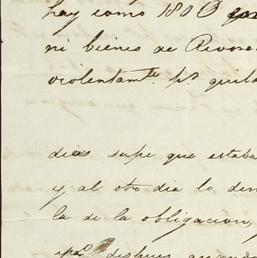 hay como 1800
ni bienes de Rivera
violentamte. pa. quita
dias supe que estaba
y al otro dia lo den
la de la obligacion,
despues cuando